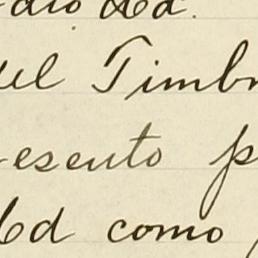 dio Ud.
del Timbr
esento p
Ud como